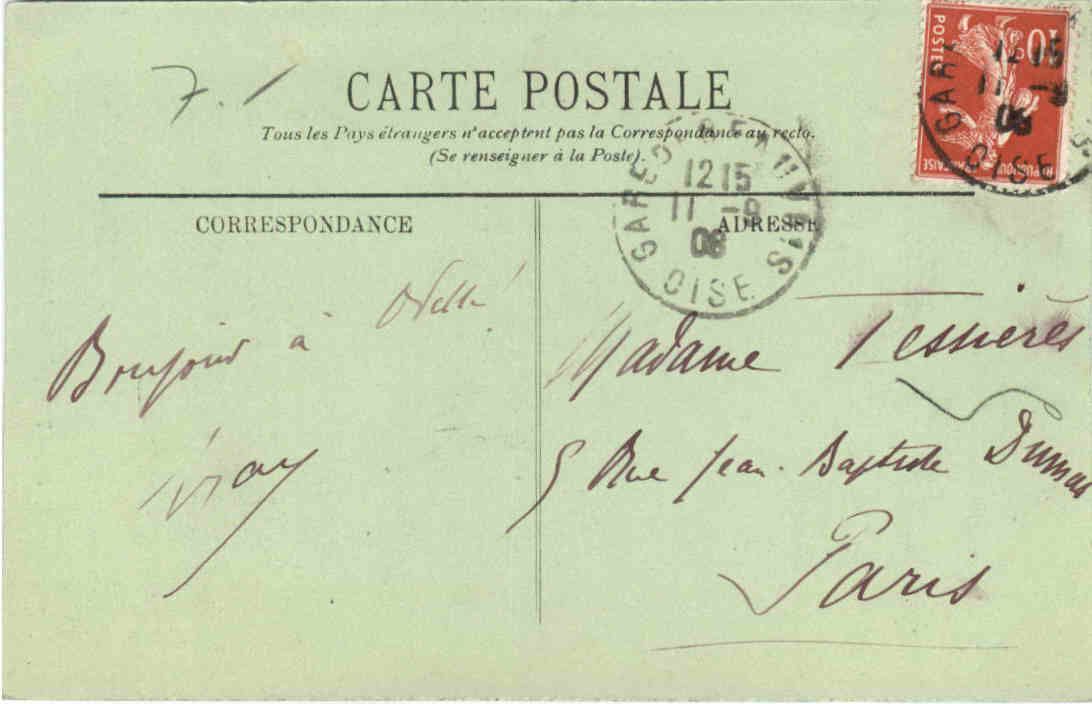 7.1
CARTE POSTALE
Tous les Pays étrangers n'acceptent pas la Correspondance au recto.
(Se renseigner à la Poste).
10
POSTES
GARE
12 15
11 -9
08
OISE
GARE DE BEAUVAIS
12 15
11 -9
08
OISE
CORRESPONDANCE
ADRESSE
Bonjour à
Madame Tessières
5 Rue Jean-Baptiste Dumas
Paris